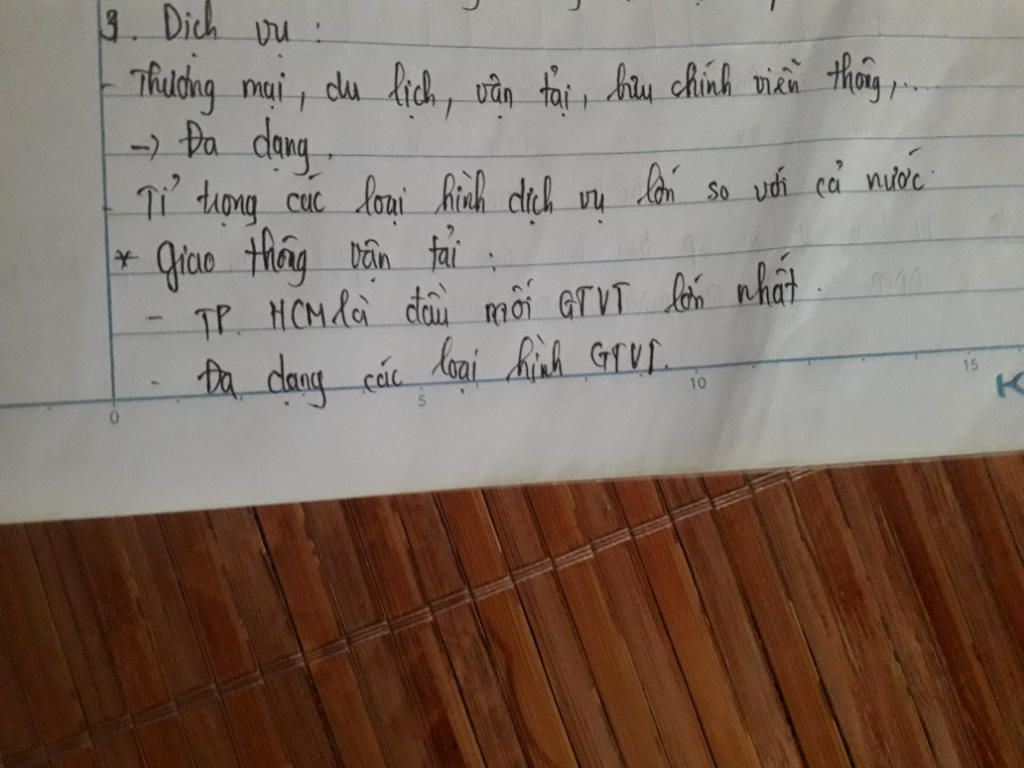 3. Dịch vụ :
- Thương mại, du lịch, vận tải, bưu chính viễn thông,...
-> Đa dạng.
- Tỉ trọng các loại hình dịch vụ lớn so với cả nước.
* Giao thông vận tải :
- TP. HCM là đầu mối GTVT lớn nhất.
- Đa dạng các loại hình GTVT.
0 5 10 15
K